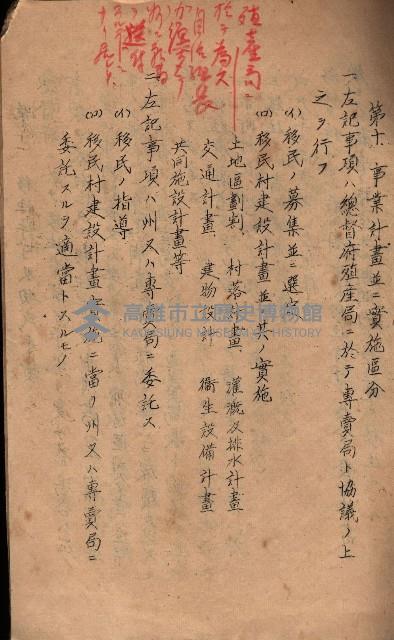 第十、事業計畫並ニ實施區分
一、左記事項ハ總督府殖產局ニ於テ專賣局ト協議ノ上
之ヲ行フ
(イ)移民ノ募集並ニ選定
(ロ)移民村建設計畫並其ノ實施
土地區劃割 村落計畫、灌漑及排水計畫
交通計畫、建物設計 衞生設備計畫
共同施設計畫等
二、左記事項ハ州又ハ專賣局ニ委託ス
(イ)移民ノ指導
(ロ)移民村建設計畫實施ニ當リ州又ハ專賣局ニ
委託スルヲ適當トスルモノ
殖產局ニ
於テ為ス
高雄市立歷史博物館
KAOHSIUNG MUSEUM OF HISTORY